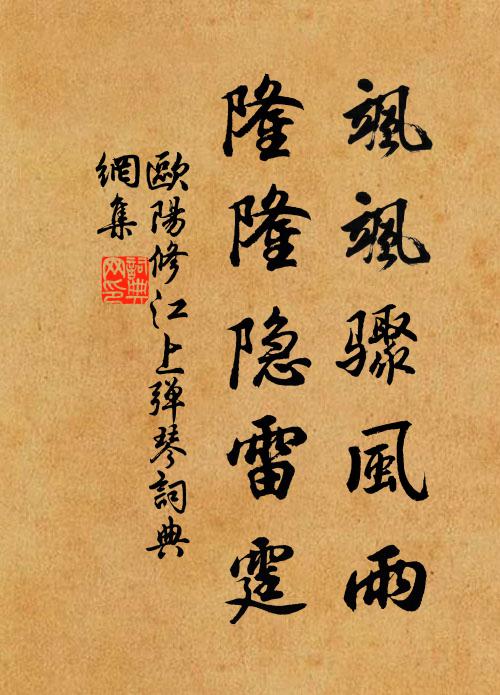 颯颯驟風雨
隆隆隐雷霆
歐陽修江上弹琴詞典
網集
詞典
网印